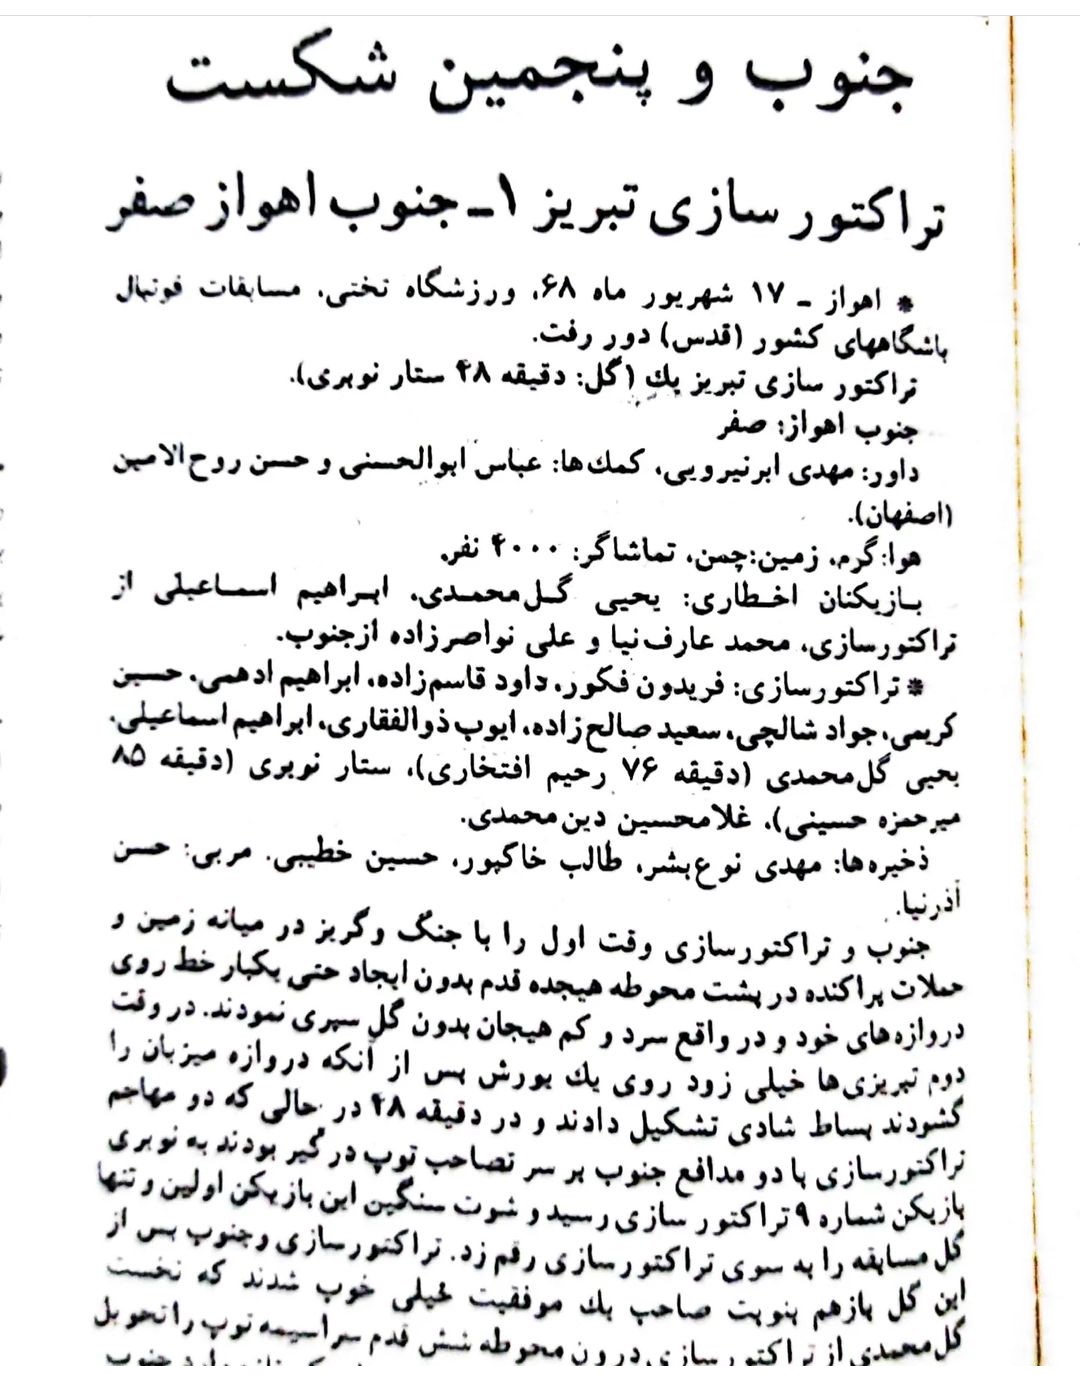 جنوب و پنجمین شکست
تراکتور سازی تبریز ۱ـ جنوب اهواز صفر
* اهواز ـ ۱۷ شهریور ماه ۶۸، ورزشگاه تختی، مسابقات فوتبال
باشگاههای کشور (قدس) دور رفت.
تراکتور سازی تبریز یك (گل: دقیقه ۴۸ ستار نوبری).
جنوب اهواز: صفر
داور: مهدی ابرنیرویی، کمك‌ها: عباس ابوالحسنی و حسن روح‌الامین
(اصفهان).
هوا:گرم، زمین:چمن، تماشاگر: ۴۰۰۰ نفر.
بازیکنان اخطاری: یحیی گل‌محمدی، ابراهیم اسماعیلی از
تراکتورسازی، محمد عارف‌نیا و علی نواصرزاده ازجنوب.
* تراکتورسازی: فریدون فکور، داود قاسم‌زاده، ابراهیم ادهمی، حسین
کریمی، جواد شالچی، سعید صالح‌زاده، ایوب ذوالفقاری، ابراهیم اسماعیلی،
یحیی گل‌محمدی (دقیقه ۷۶ رحیم افتخاری)، ستار نوبری (دقیقه ۸۵
میرحمزه حسینی)، غلامحسین دین‌محمدی.
ذخیره‌ها: مهدی نوع‌بشر، طالب خاکپور، حسین خطیبی. مربی: حسن
آذرنیا.
جنوب و تراکتورسازی وقت اول را با جنگ وگریز در میانه زمین و
حملات پراکنده در پشت محوطه هیجده قدم بدون ایجاد حتی یکبار خط روی
دروازه‌های خود و در واقع سرد و کم هیجان بدون گل سپری نمودند. در وقت
دوم تبریزی‌ها خیلی زود روی یك یورش پس از آنکه دروازه میزبان را
گشودند بساط شادی تشکیل دادند و در دقیقه ۴۸ در حالی که دو مهاجم
تراکتورسازی با دو مدافع جنوب بر سر تصاحب توپ درگیر بودند به نوبری
بازیکن شماره ۹ تراکتور سازی رسید و شوت سنگین این بازیکن اولین و تنها
گل مسابقه را به سوی تراکتورسازی رقم زد. تراکتورسازی وجنوب پس از
این گل بازهم بنوبت صاحب یك موفقیت خیلی خوب شدند که نخست
گل‌محمدی از تراکتورسازی درون محوطه شش قدم سراسیمه توپ را تحویل